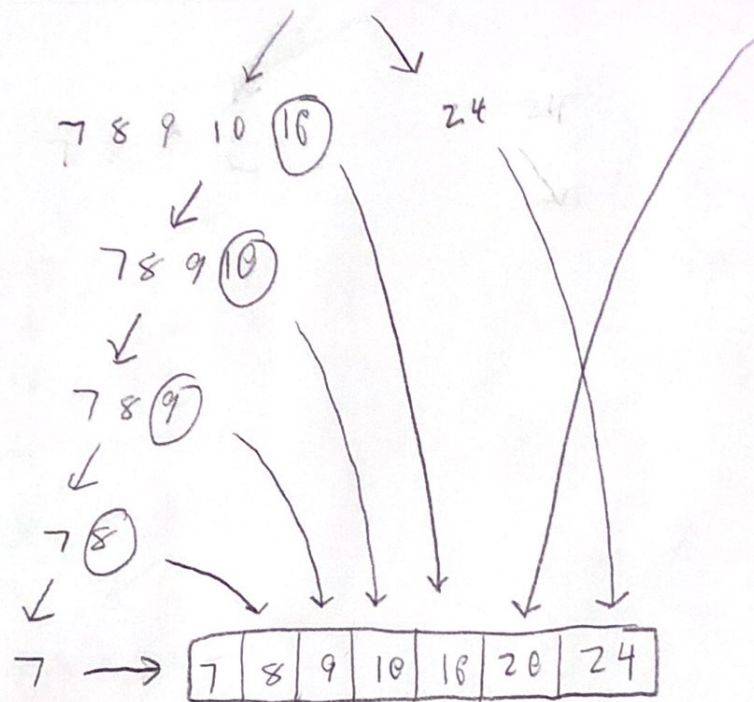 7 8 9 10 16 24
7 8 9 10
7 8 9
7 8
7 7 8 9 10 16 20 24